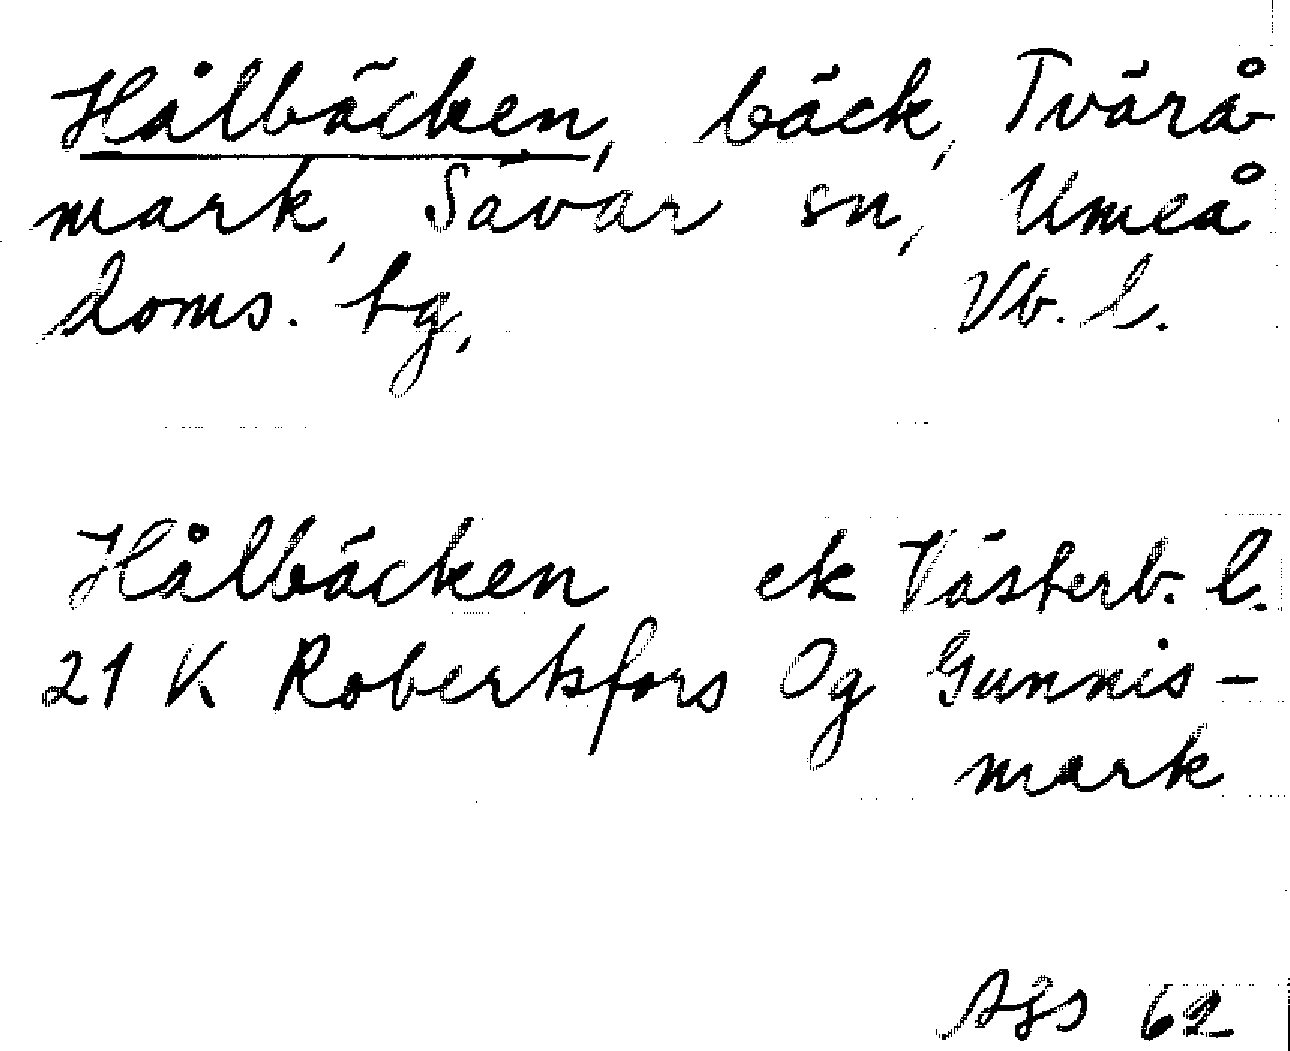 Hålbäcken, bäck, Tvärå-
mark, Sävar sn, Umeå
doms. tg, Vb. l.
Hålbäcken ek Västerb. l.
21 K Robertsfors Og Gunnis-
mark
62